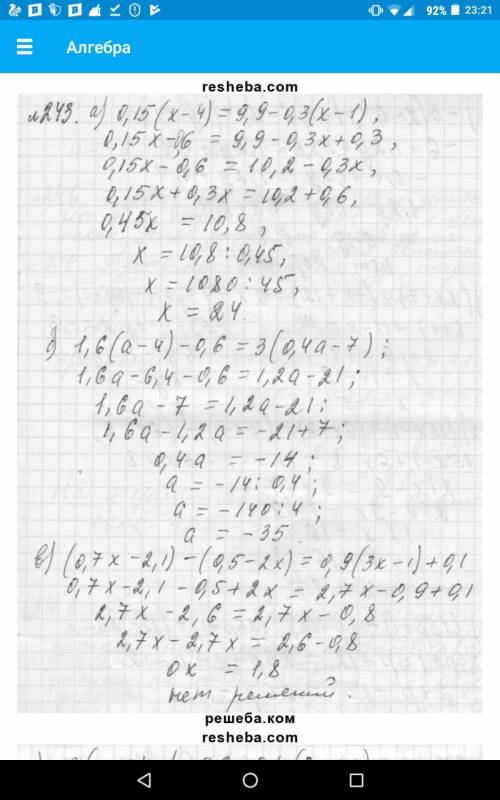 92% 23:21
Алгебра
resheba.com
№243. а) 0,15(х-4)=9,9-0,3(х-1),
0,15х-0,6 = 9,9-0,3х+0,3,
0,15х-0,6 = 10,2-0,3х,
0,15х+0,3х=10,2+0,6,
0,45х = 10,8,
х = 10,8 : 0,45,
х = 1080 : 45,
х = 24.
б) 1,6(а-4)-0,6=3(0,4а-7);
1,6а-6,4-0,6=1,2а-21;
1,6а-7=1,2а-21;
1,6а-1,2а=-21+7;
0,4а = -14;
а = -14:0,4;
а = -140:4;
а = -35.
в) (0,7х-2,1)-(0,5-2х)=0,9(3х-1)+0,1
0,7х-2,1-0,5+2х = 2,7х-0,9+0,1
2,7х-2,6=2,7х-0,8
2,7х-2,7х = 2,6-0,8
0х = 1,8
нет решений.
решеба.ком
resheba.com